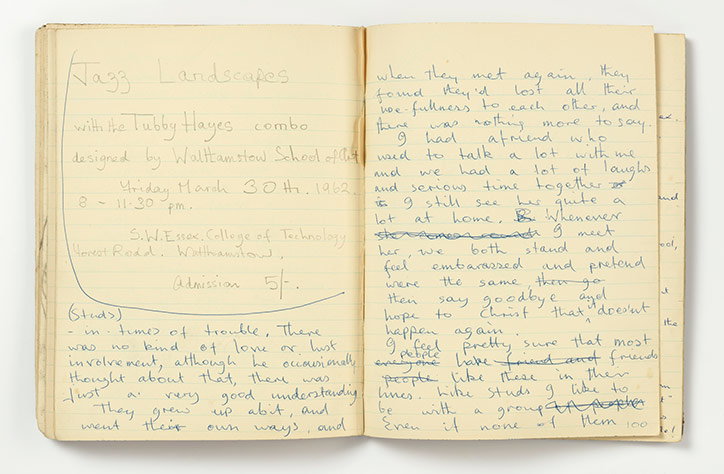 Jazz Landscapes
with the Tubby Hayes combo
designed by Walthamstow School of Art
Friday March 30th. 1962.
8 - 11.30 pm.
S.W. Essex. College of Technology
Forest Road. Walthamstow.
Admission 5/-.
(Studs)
- in times of trouble. There
was no kind of love or lust
involvement, although he occasionally
thought about that, there was
just a very good understanding
They grew up a bit, and
went their own ways, and
when they met again, they
found they'd lost all their
use-fullness to each other, and
there was nothing more to say.
I had a friend who
used to talk a lot with me
and we had a lot of laughs
and serious time together
I still see her quite a
lot at home. Whenever
I meet
her, we both stand and
feel embarassed and pretend
were the same, then go
then say goodbye and
hope to Christ that it doesnt
happen again.
I feel pretty sure that most
everyone people have friend and friends
people like these in their
lives. Like Studs I like to
be with a group
Even if none of them 100
ex.
and
ool,
t
the